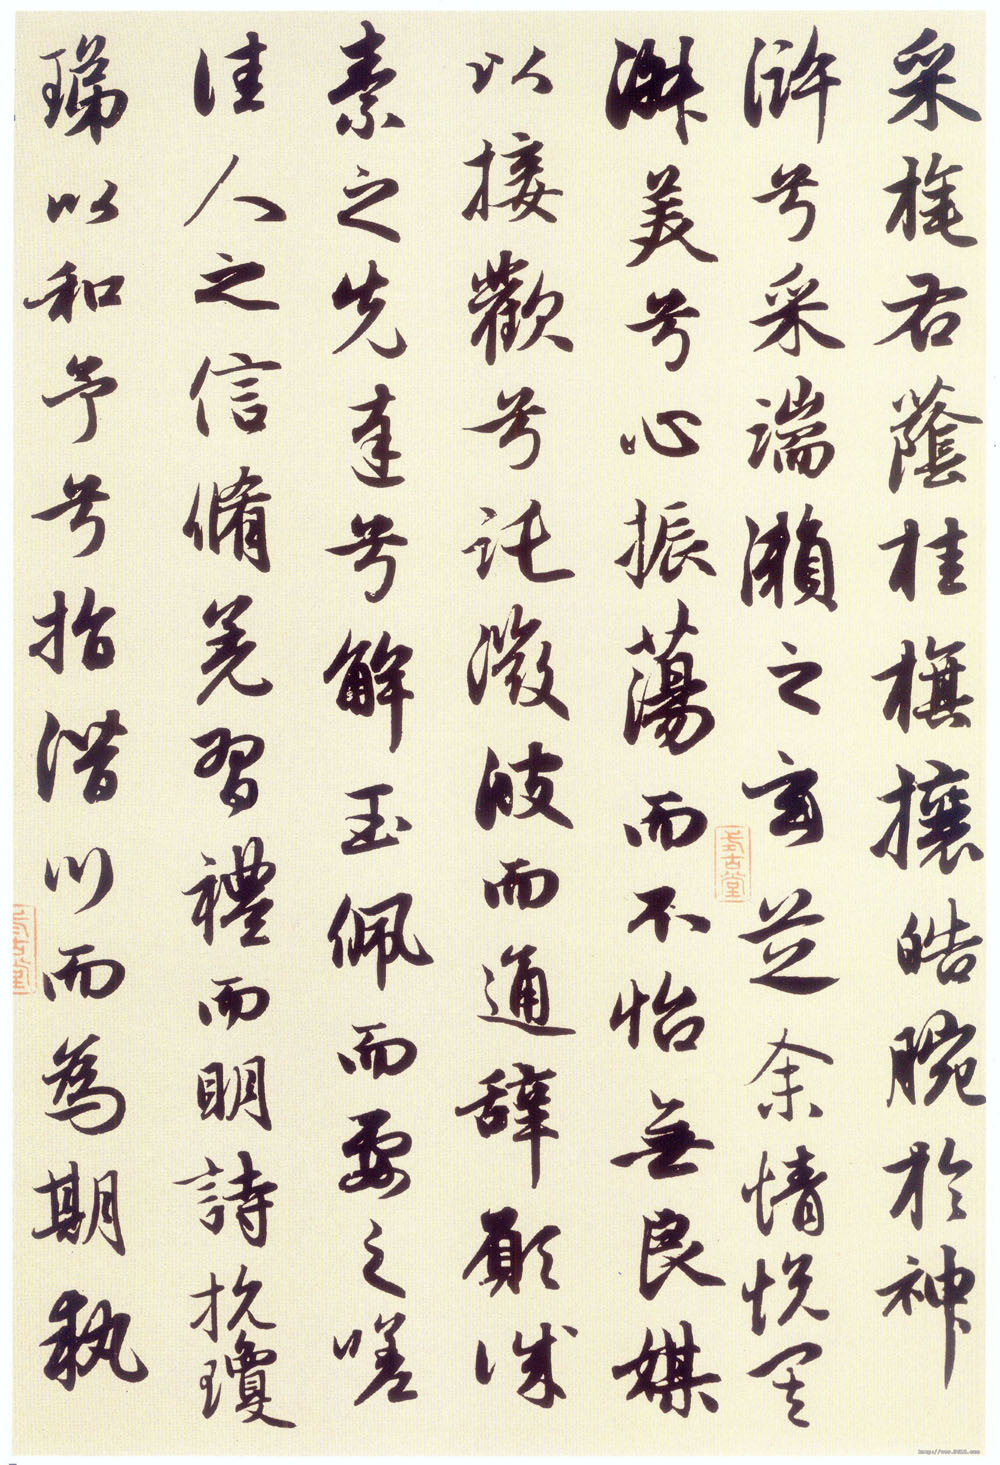 采旄右蔭桂旗攘皓腕於神
滸兮采湍瀨之玄芝余情悅其
淑美兮心振蕩而不怡無良媒
以接歡兮託微波而通辭願誠
素之先達兮解玉佩而要之嗟
佳人之信脩羌習禮而明詩抗瓊
珶以和予兮指潛川而為期執
式古堂
式古堂